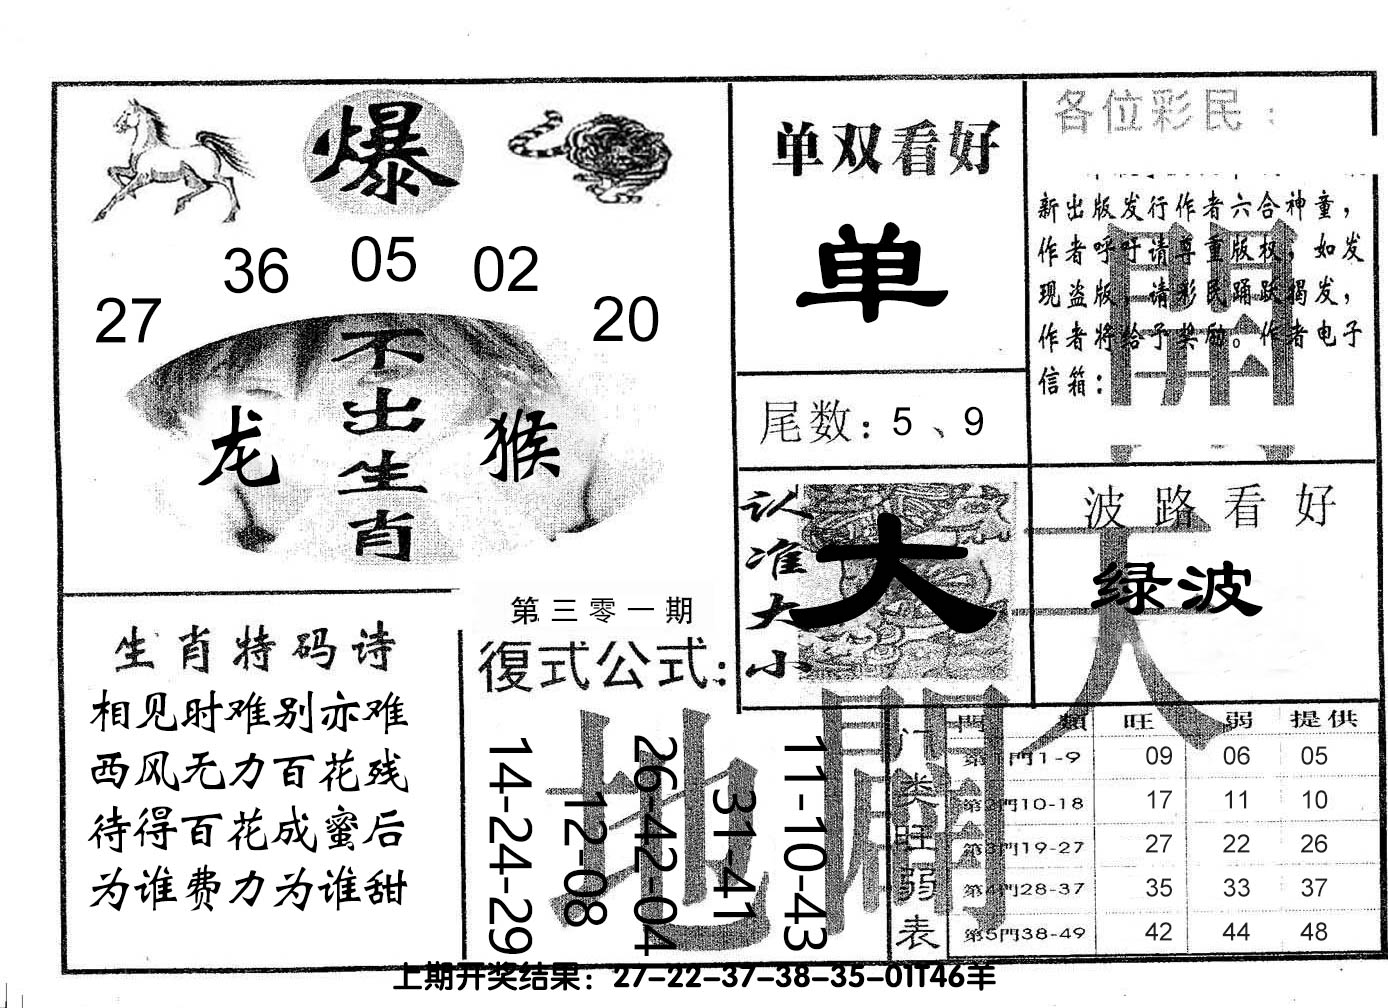 爆
27 36 05 02 20
不出生肖
龙 猴
生肖特码诗
相见时难别亦难
西风无力百花残
待得百花成蜜后
为谁费力为谁甜
第三零一期
復式公式：
14-24-29
12-08
26-42-04
31-41
11-10-43
单双看好
单
尾数：5、9
认准大小
大
各位彩民：
新出版发行作者六合神童，
作者呼吁请尊重版权，如发
现盗版，请彩民踊跃揭发，
作者将给予奖励。作者电子
信箱：
波路看好
绿波
天
地
開
門類 旺 弱 提供
门类旺弱表
第1門1-9 09 06 05
第2門10-18 17 11 10
第3門19-27 27 22 26
第4門28-37 35 33 37
第5門38-49 42 44 48
上期开奖结果：27-22-37-38-35-01T46羊